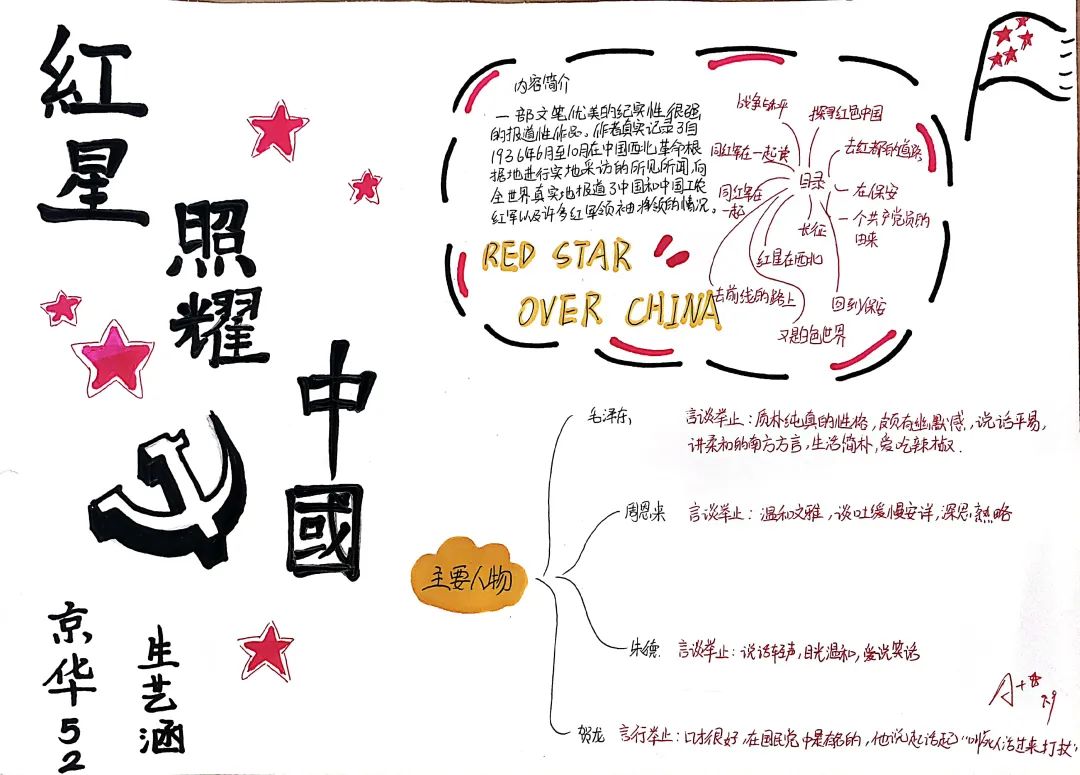 紅星
照耀
中國
京华52
生艺涵
内容简介
一部文笔优美的纪实性很强
的报道性作品。作者真实记录了自
1936年6月至10月在中国西北革命根
据地进行实地采访的所见所闻,向
全世界真实地报道了中国和中国工农
红军以及许多红军领袖、将领的情况。
RED STAR
OVER CHINA
目录
探寻红色中国
去红都的道路
在保安
一个共产党员的
由来
长征
红星在西北
去前线的路上
同红军在
一起
同红军在一起
战争与和平
回到保安
又是白色世界
主要人物
毛泽东:
言谈举止:质朴纯真的性格,颇有幽默感,说话平易,
讲柔和的南方方言,生活简朴,爱吃辣椒.
周恩来
言谈举止:温和文雅,谈吐缓慢安详,深思熟略
朱德:
言谈举止:说话轻声,目光温和,爱说笑话
贺龙
言行举止:口才很好,在国民党中是有名的,他说起话起"叫死人活过来打仗"
A+